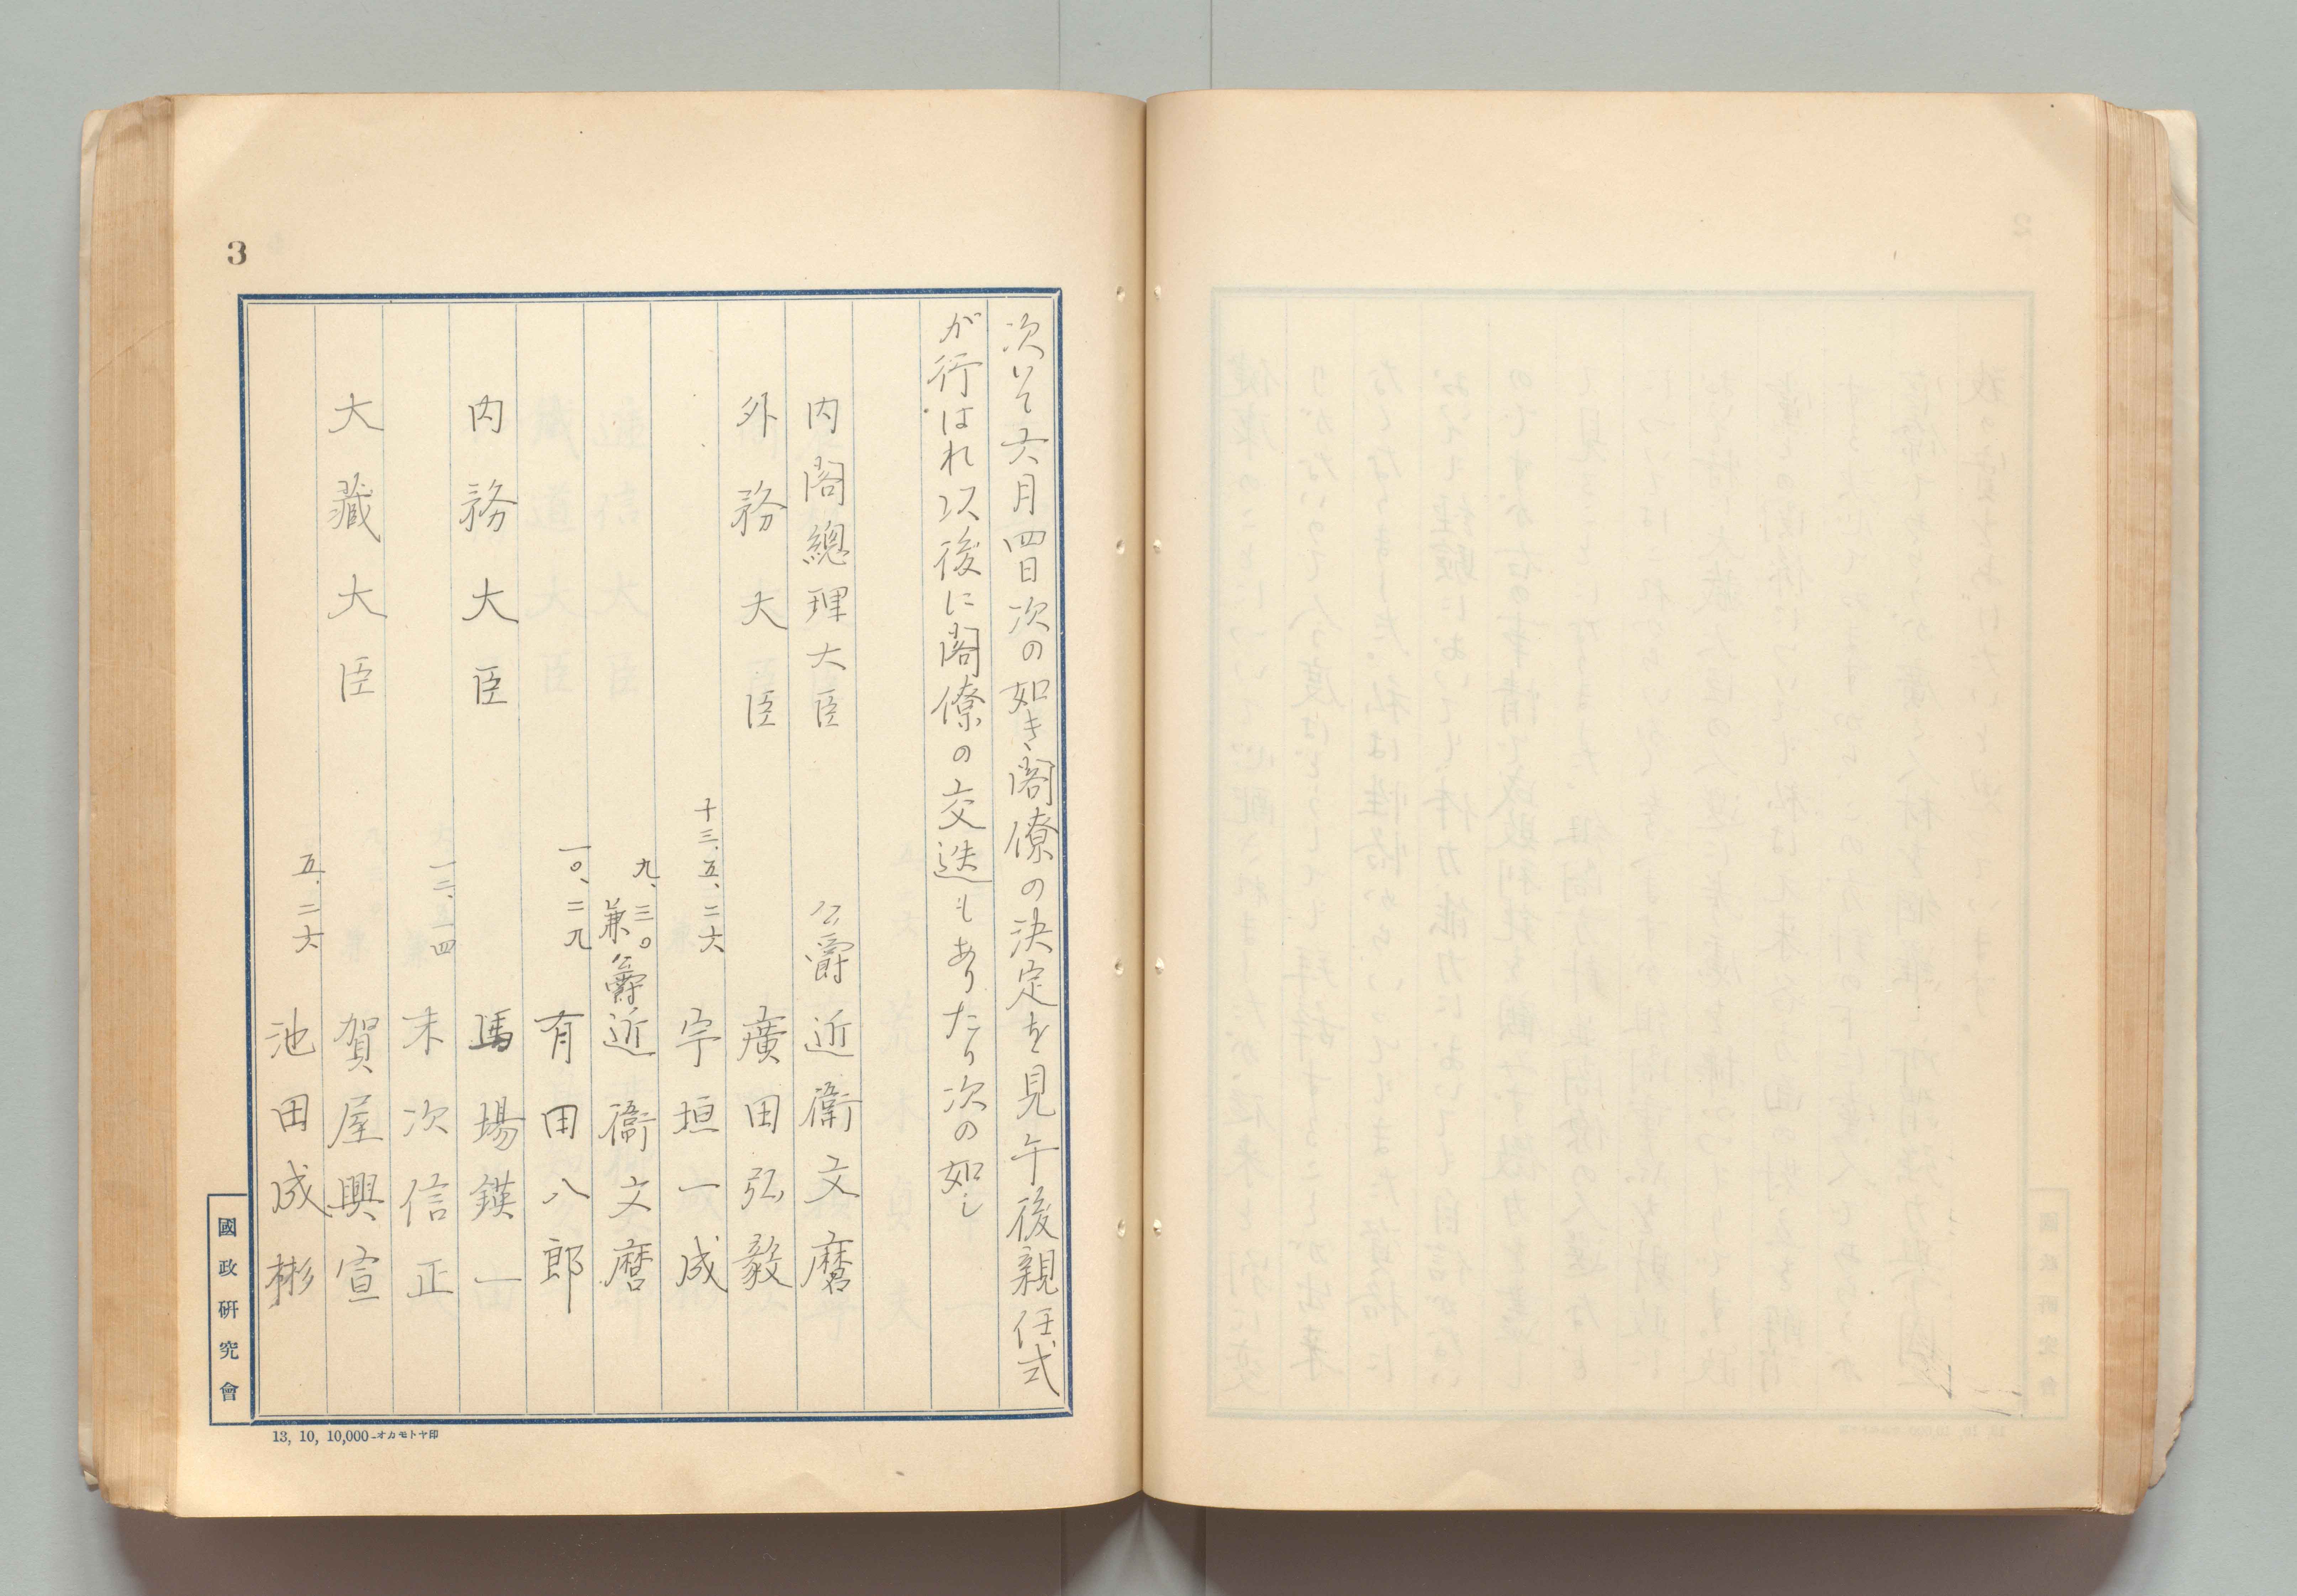 3
次いで六月四日次の如き閣僚の決定を見午後親任式
が行はれ以後に閣僚の交迭もありたり次の如し
内閣總理大臣 公爵 近衞文麿
外務大臣 廣田弘毅
十三、五、二六 宇垣一成
九、三〇 兼 公爵 近衞文麿
一〇、二九 有田八郎
内務大臣 馬場鍈一
一二、一四 末次信正
大藏大臣 賀屋興宣
五、二六 池田成彬
國政硏究會
13, 10, 10,000—オカモトヤ印